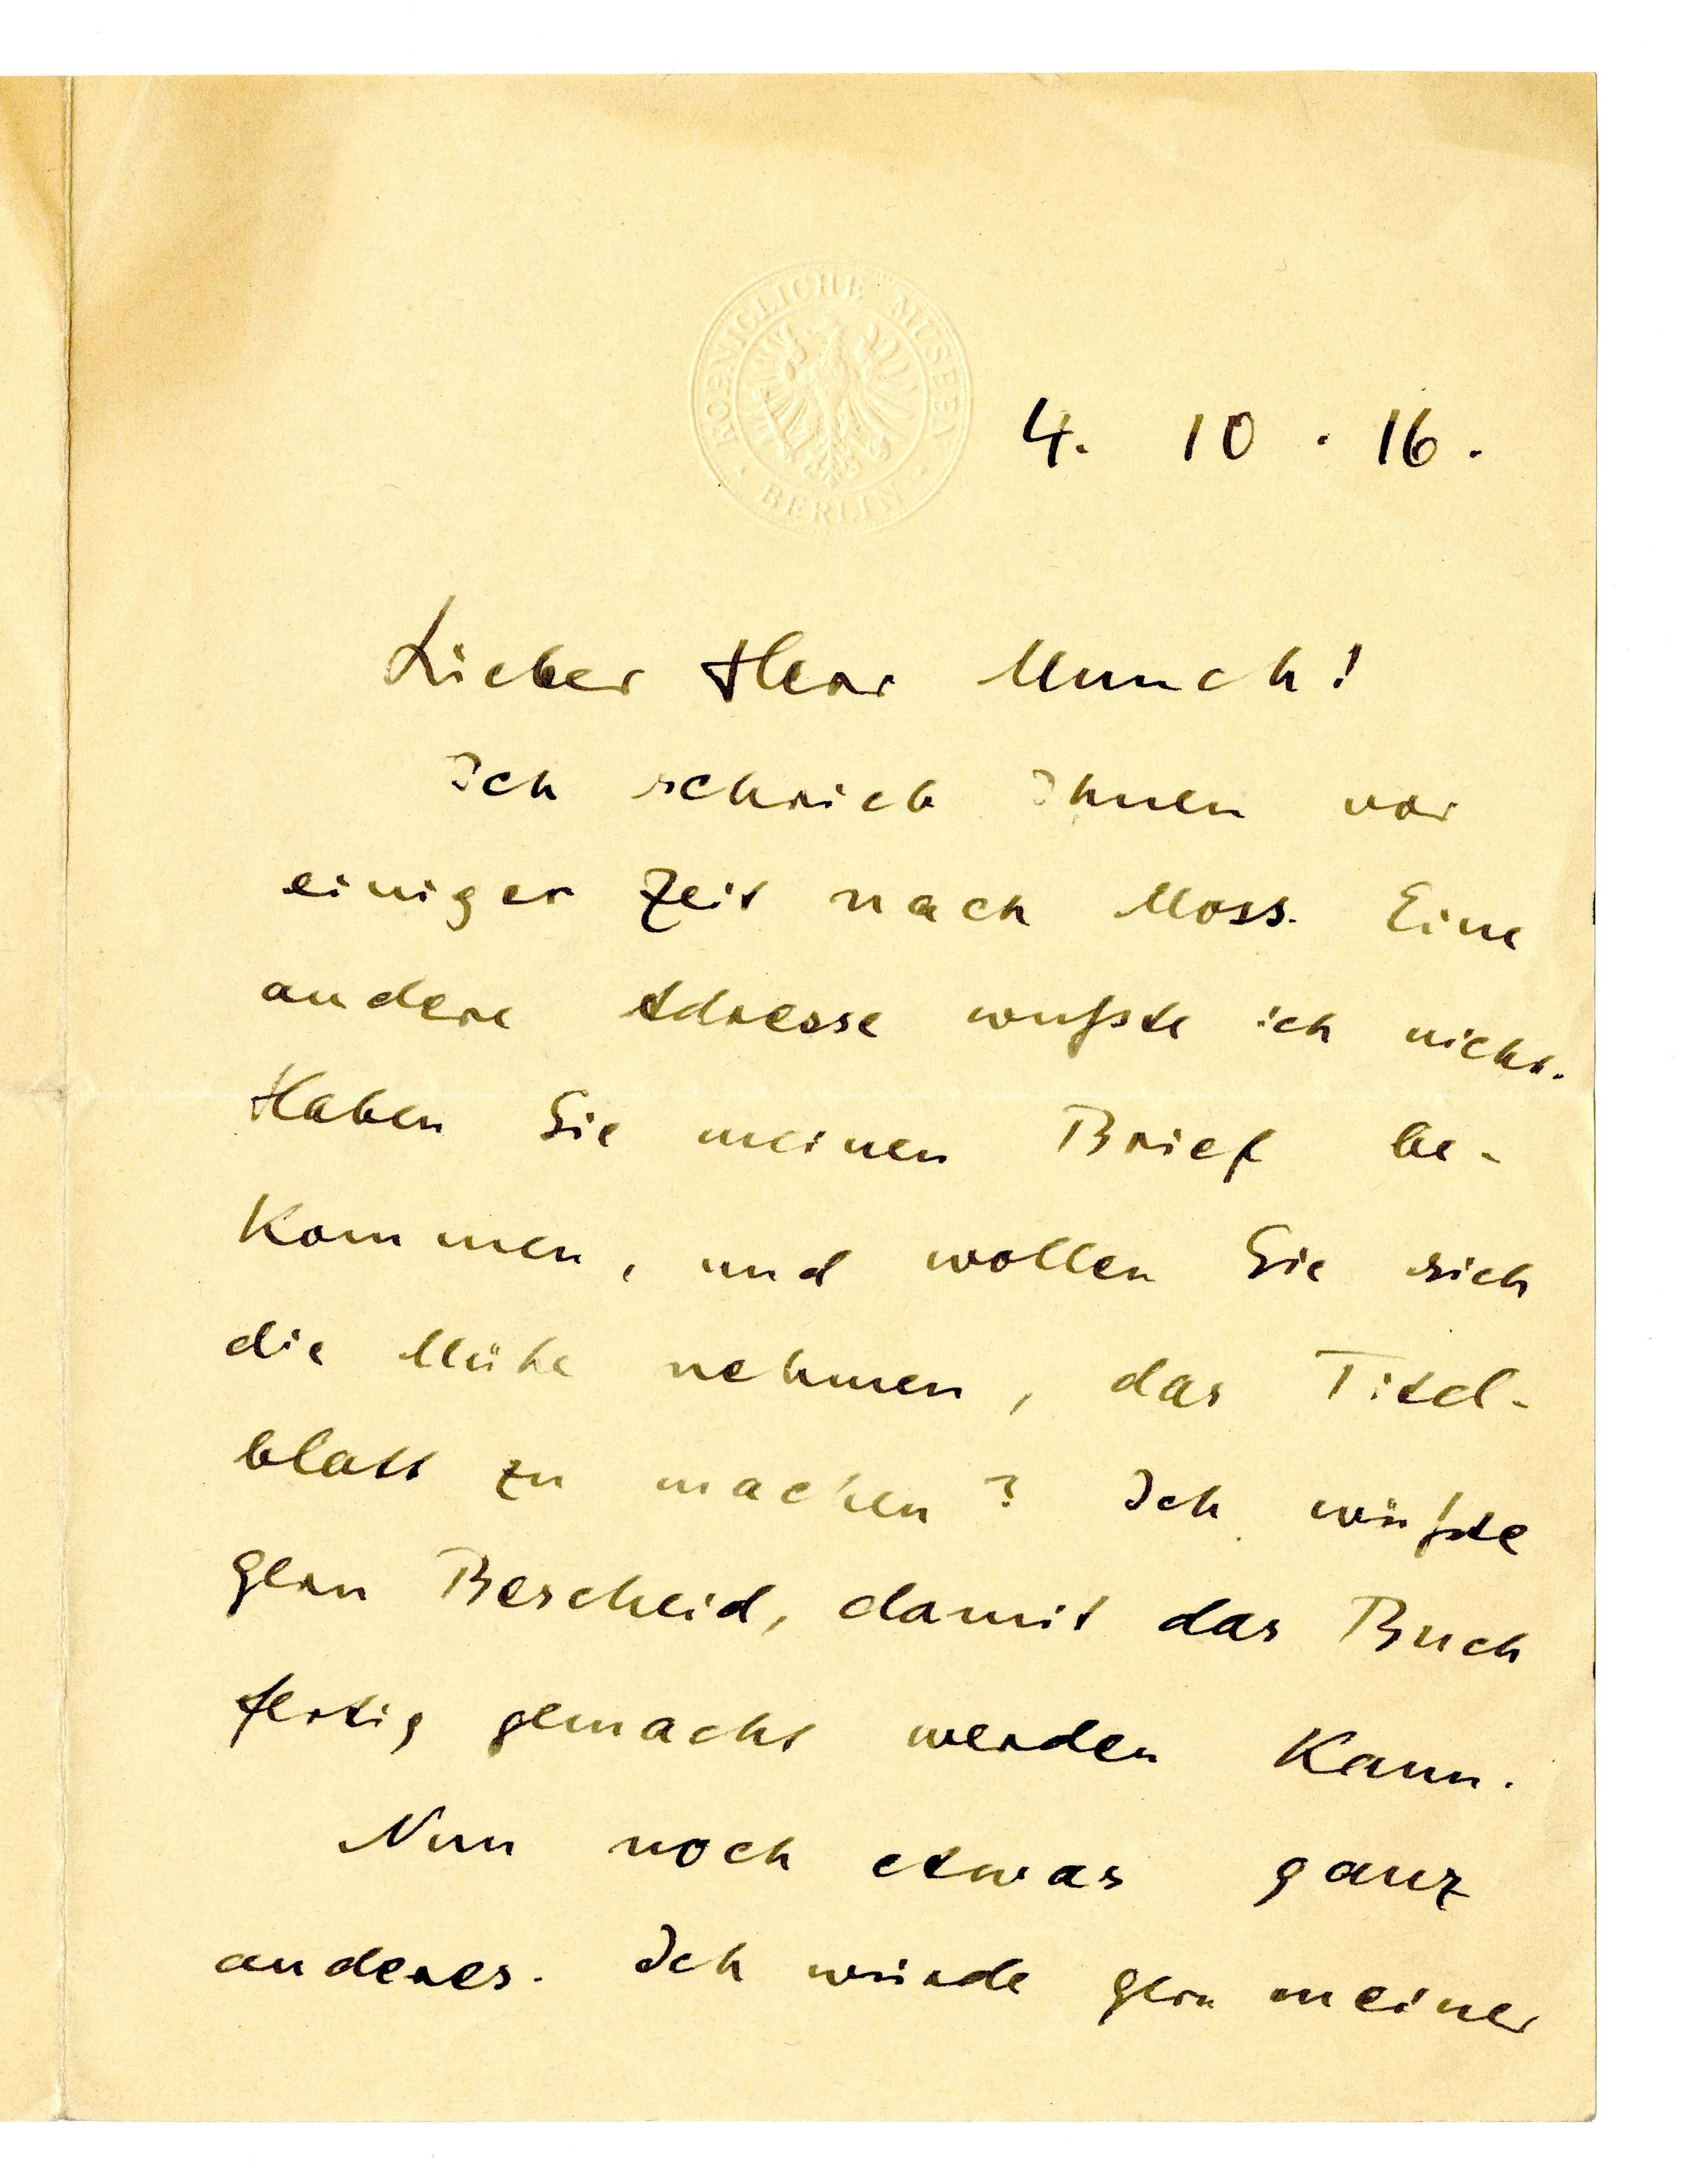 KOENIGLICHE MUSEEN
BERLIN
4. 10. 16.
Lieber Herr Munch!
Ich schrieb Ihnen vor
einiger Zeit nach Moss. Eine
andere Adresse wußte ich nicht.
Haben Sie meinen Brief be-
kommen, und wollen Sie sich
die Mühe nehmen, das Titel-
blatt zu machen? Ich wüßte
gern Bescheid, damit das Buch
fertig gemacht werden kann.
Nun noch etwas ganz
anderes. Ich würde gern meiner